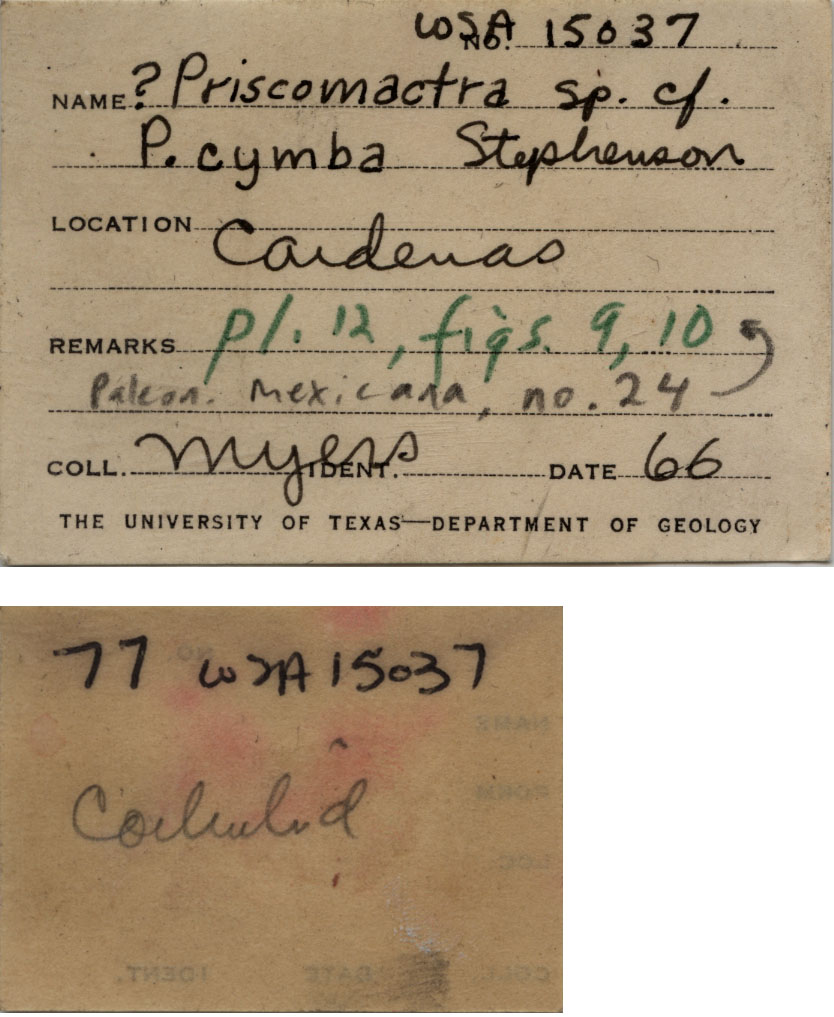 WSA
NO. 15037
NAME ? Priscomactra sp. cf.
P. cymba Stephenson
LOCATION Cardenas
REMARKS pl. 12, figs. 9, 10
Paleon. Mexicana, no. 24
COLL. Myers IDENT. DATE 66
THE UNIVERSITY OF TEXAS—DEPARTMENT OF GEOLOGY
77 WSA 15037
NO.
NAME
FORM
LOC
COLL. DATE IDENT.